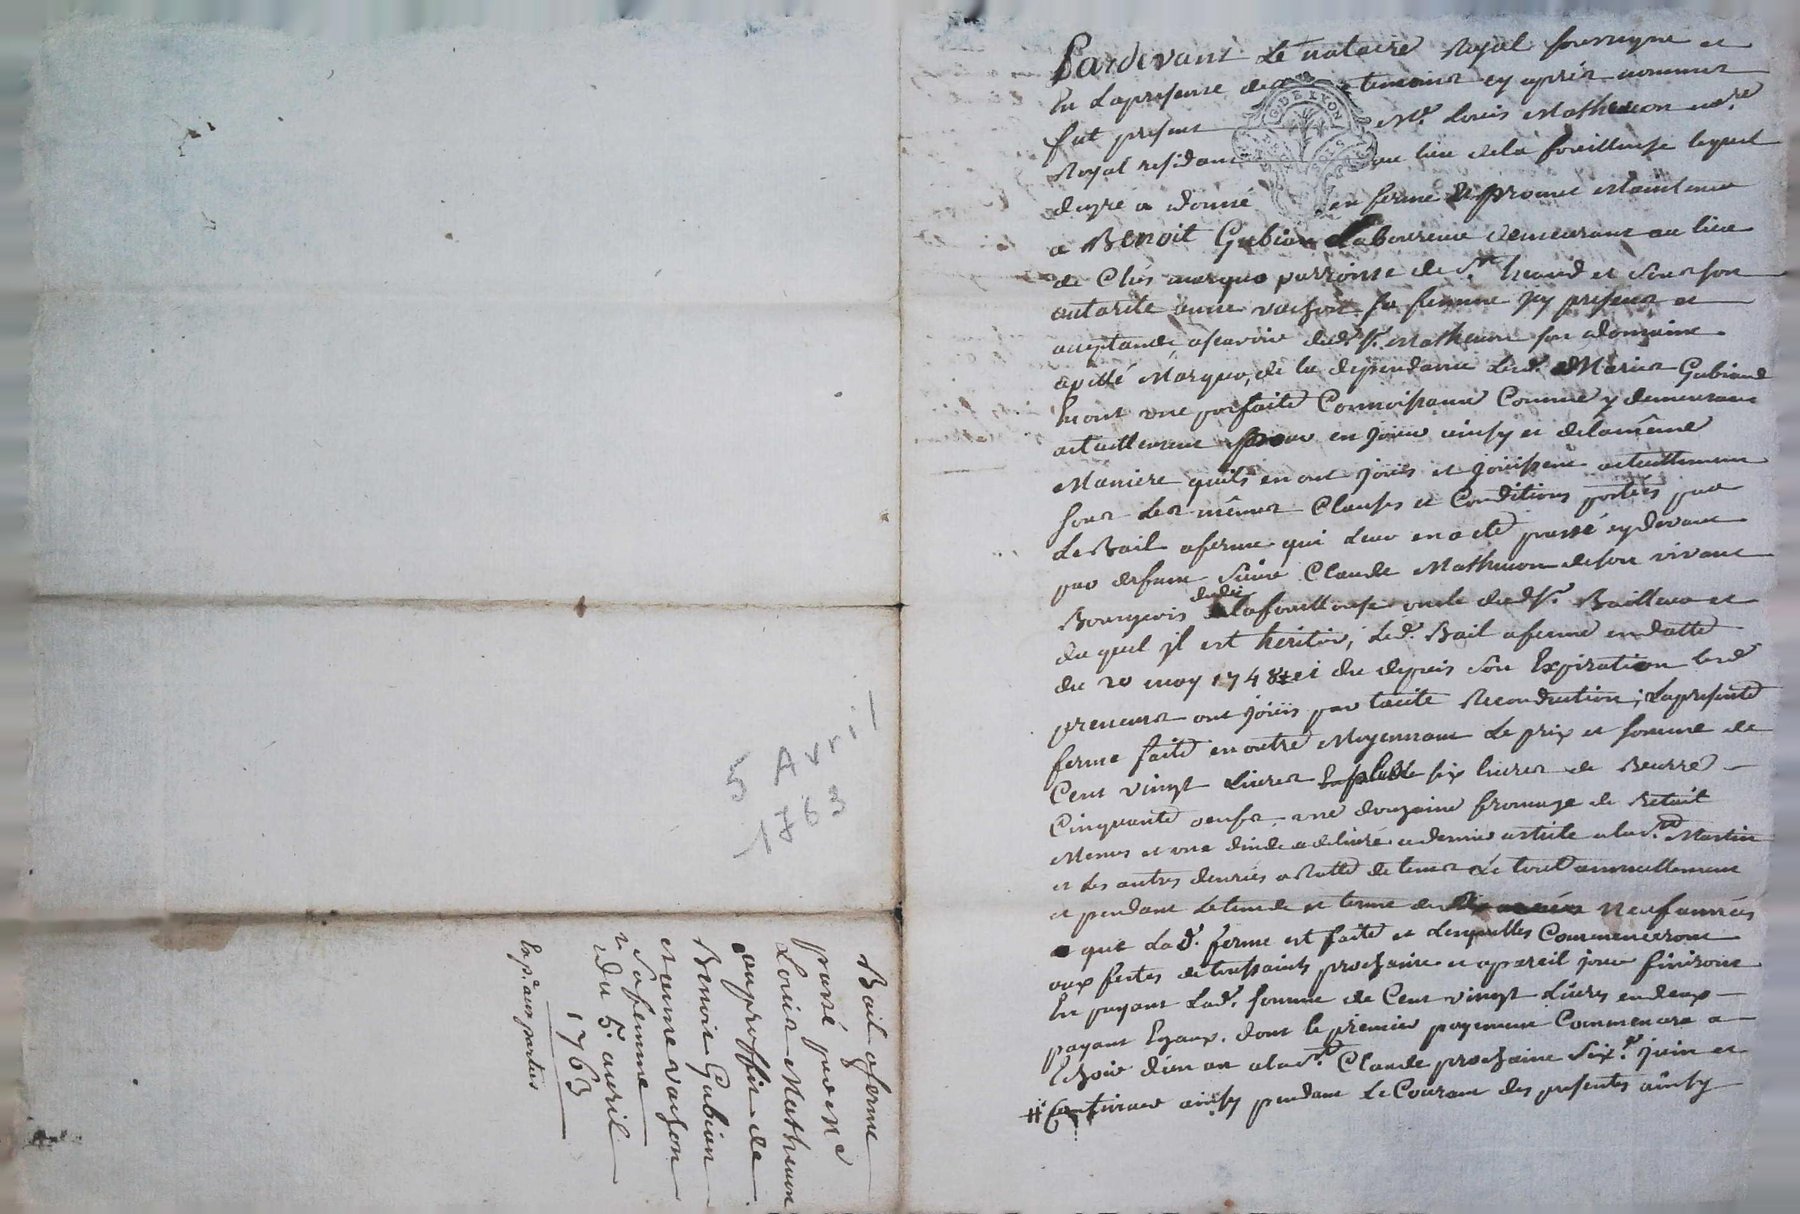 Pardevant Le notaire Royal soussigné et
En Lapresence des temoins cy après nommes
fut present Me. Louis Mathevon no.re
Royal residant au lieu dela fouillouse lequel
degré a donné en ferme et promet maintenir
a Benoit Gubian Laboureur demeurant au lieu
de Chés marquo parroisse de St. heand et sous son
autorité anne vachon sa femme jcy presens et
acceptants ascavoir dudt. Sr. Mathevon son domaine
apellé Marquo, de la dependance Led. Mariés Gubiand
En ont une parfaite Connoissance Comme y demeurant
actuellement pour en jouir ainsy et delamême
Maniere quils en ont joüis et joüissent actuellement
sous Les mêmes Clauses et Conditions portées par
Le Bail aferme qui Leur en a eté passé cydevant
par defunt Sieur Claude Mathevon deson vivant
Bourgeois dudit Lafouillouse oncle dudt. Sr. Bailleur et
du quel jl est heritier, Led. Bail aferme en datte
du 20 may 1748 et du depuis son Expiration Lesd
preneurs ont joüis par tacite Reconduction; Lapresente
ferme faite en outre Moyennant Le prix et somme de
Cent vingt Livres six livres de Beurre
Cinquante oeufs une douzaine fromage de Betail
Menus et une dinde a delivré ce dernier article a la St. Martin
et Les autres denrées a Ratte de tems Le tout annuellement
et pendant Letemps et terme de Neuf années
que Lad. ferme est faite et Lesquelles Commenceront
aux festes de toussaints prochaine et apareil jour finiront
En payant Lad. somme de Cent vingt Livres en deux
payant Egaux. dont le premier payement Commencera a
Echoir d'un an a la St. Claude prochaine Six.e juin et
Continuer ainsy pendant Le Courant des presentes ainsy
5 Avril
1763
Bail aferme
passé par Me
Louis Mathevon
auproffit de
Benoit Gubian
et anne vachon
Sa femme
Du 5 avril
1763
Exp.on aux parties
DE LYON